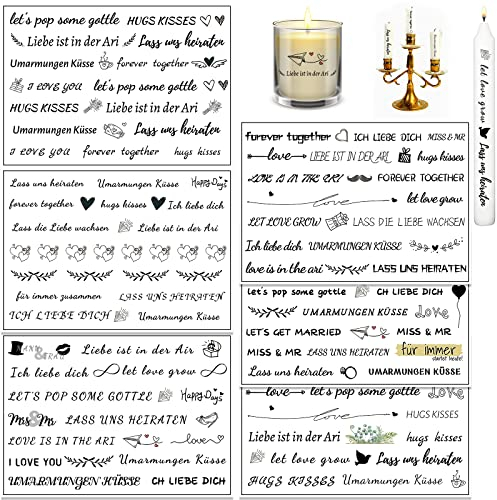 let's pop some gottle HUGS KISSES
Liebe ist in der Ari Lass uns heiraten
Umarmungen Küsse forever together
I LOVE YOU let's pop some gottle
HUGS KISSES Liebe ist in der Ari
Umarmungen Küsse Lass uns heiraten
I LOVE YOU forever together hugs kisses
Liebe ist in der Ari
let love grow Lass uns heiraten
forever together ICH LIEBE DICH MISS & MR
love LIEBE IST IN DER ARI hugs kisses
LOVE IS IN THE ARI FOREVER TOGETHER
love let love grow
LET LOVE GROW LASS DIE LIEBE WACHSEN
Ich liebe dich UMARMUNGEN KÜSSE
love is in the ari LASS UNS HEIRATEN
Lass uns heiraten Umarmungen Küsse Happy Days
forever together hugs kisses Ich liebe dich
Lass die Liebe wachsen Liebe ist in der Ari
für immer zusammen LASS UNS HEIRATEN
ICH LIEBE DICH Umarmungen Küsse
let's pop some gottle CH LIEBE DICH
UMARMUNGEN KÜSSE Love
LET'S GET MARRIED MISS & MR
MISS & MR LASS UNS HEIRATEN für immer
Lass uns heiraten UMARMUNGEN KÜSSE
MANN & FRAU Liebe ist in der Air
Ich liebe dich let love grow
LET'S POP SOME GOTTLE Happy Days
Mrs & Mr LASS UNS HEIRATEN
LOVE IS IN THE ARI love
I LOVE YOU Umarmungen Küsse
UMARMUNGEN KÜSSE CH LIEBE DICH
love let's pop some gottle Love
Lass uns heiraten HUGS KISSES
Liebe ist in der Ari hugs kisses
let love grow Lass uns heiraten
HUGS KISSES Umarmungen Küsse